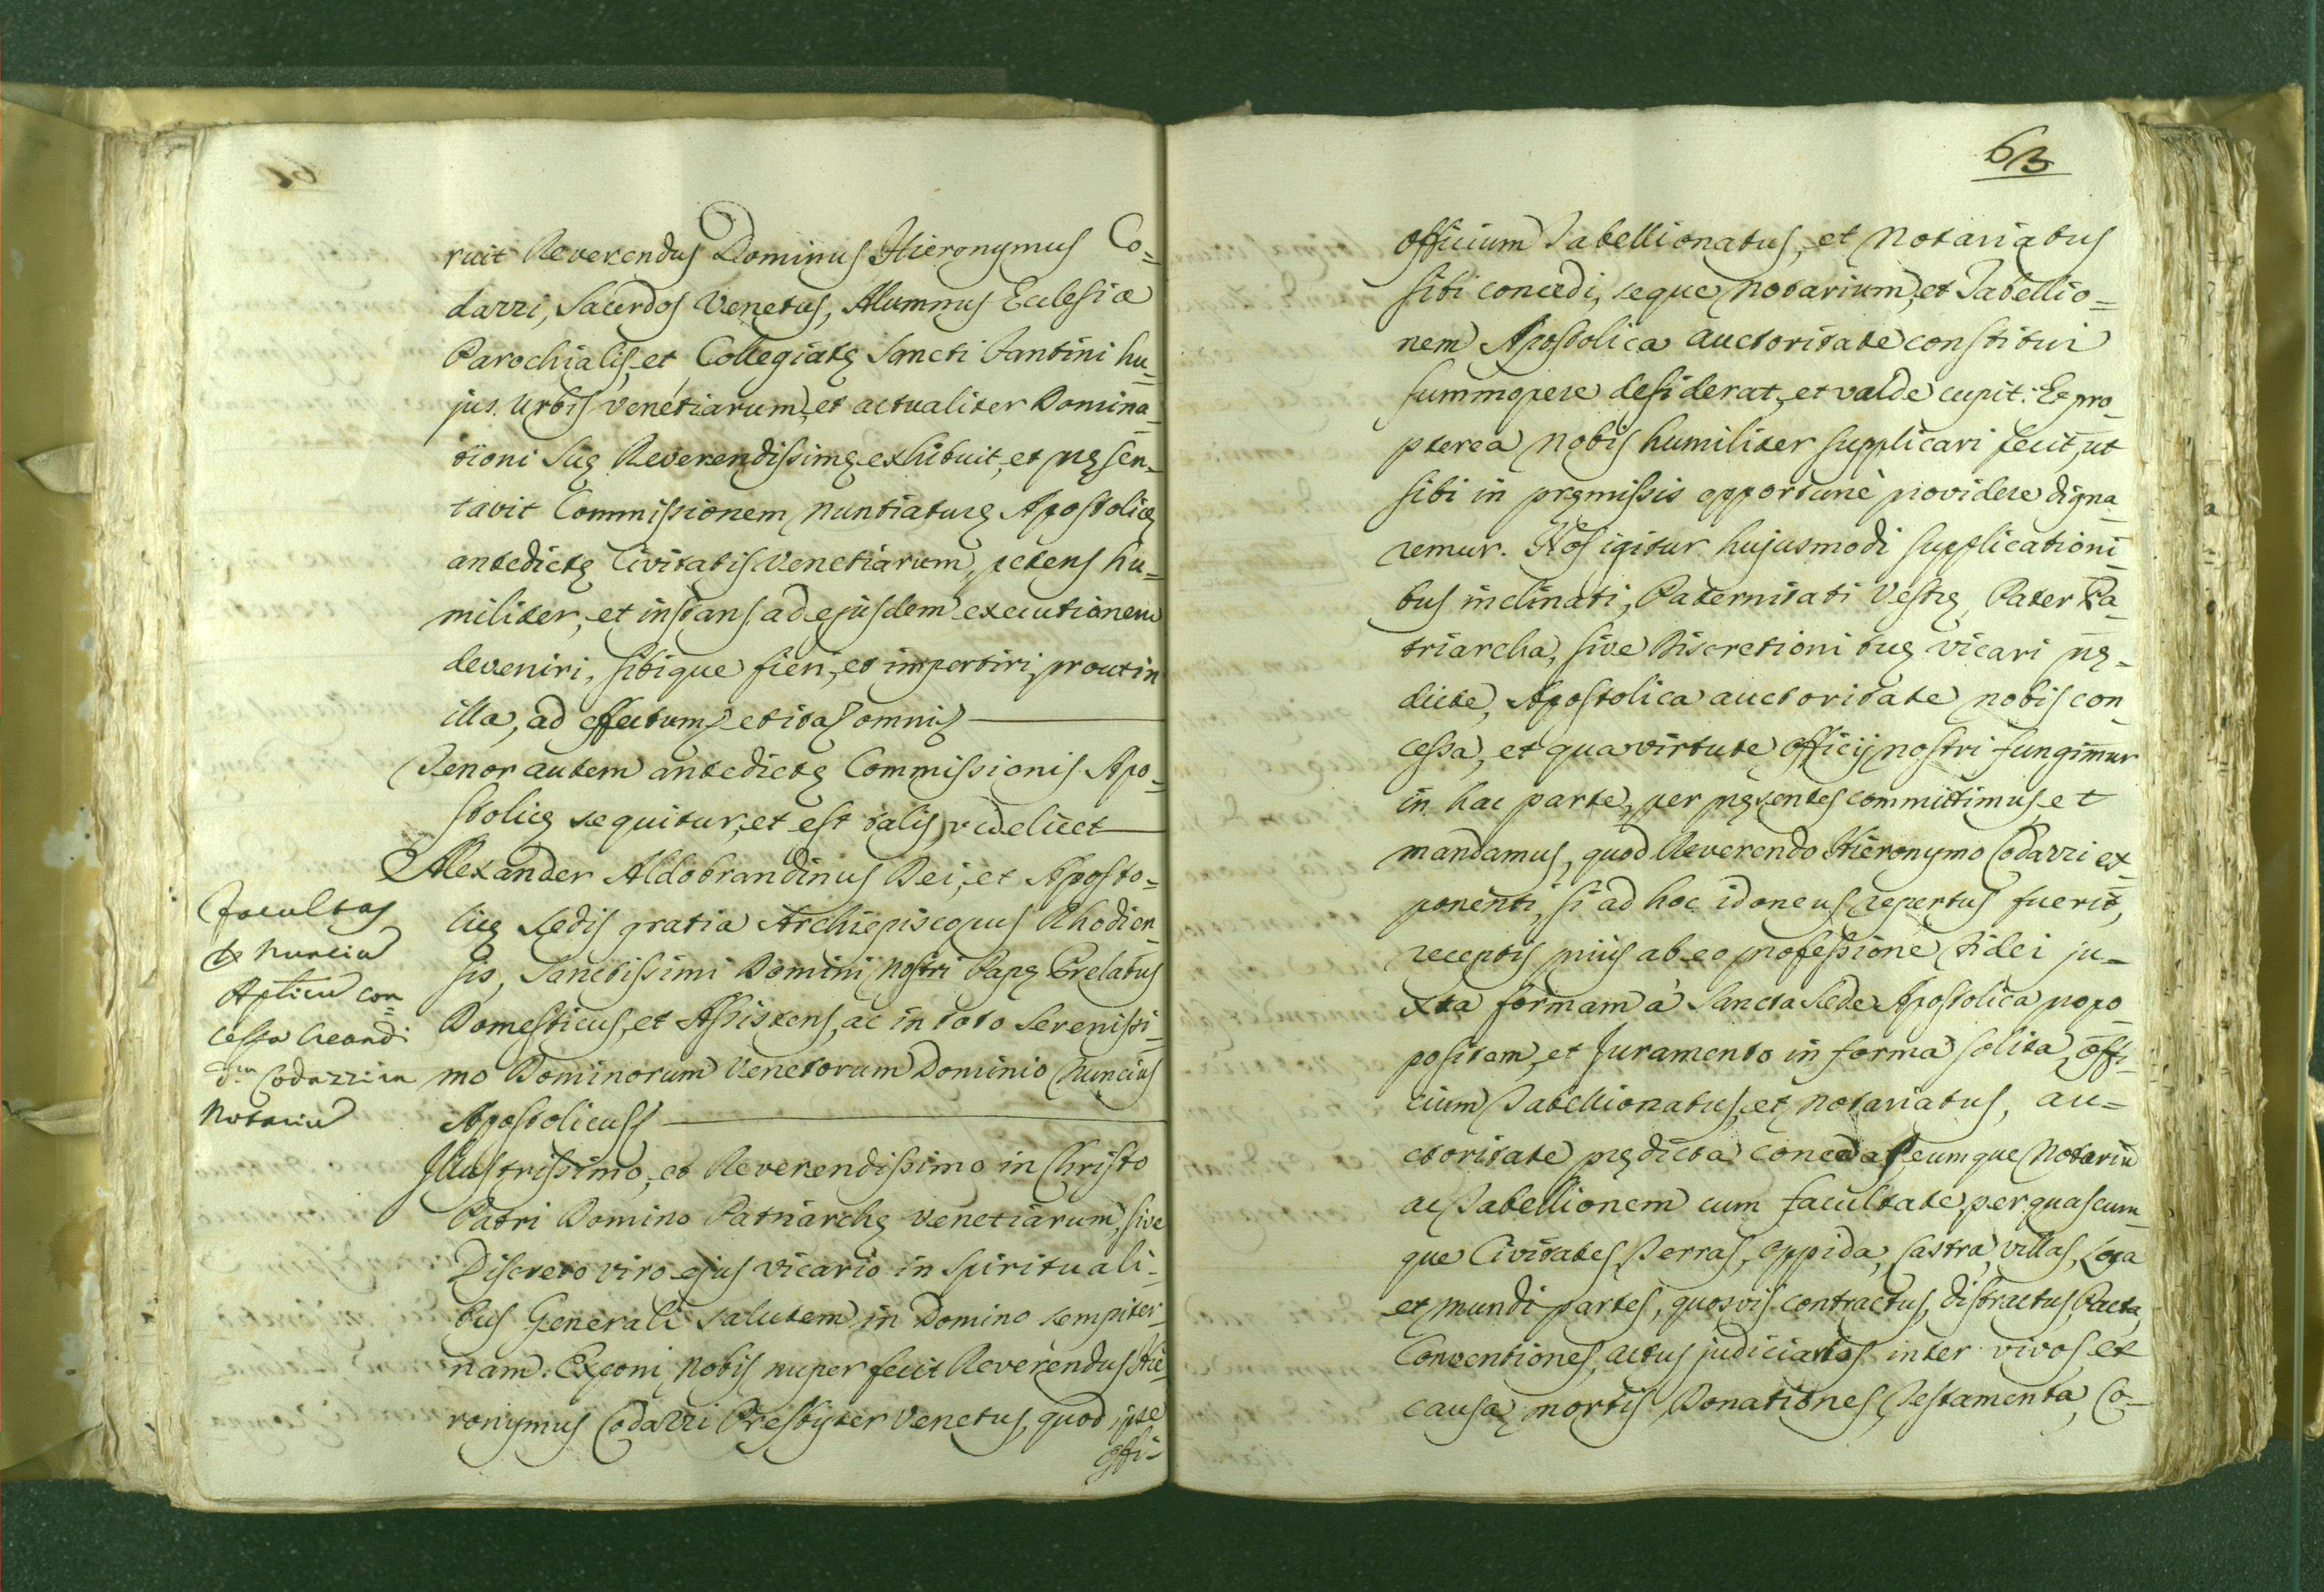 ruit Reverendus Dominus Hieronymus Co=
dazzi, Sacerdos Venetus, Alumnus Ecclesiæ
Parochialis, et Collegiatę Sancti Fantini hu=
jus Urbis Venetiarum, et actualiter Domina=
tioni Suę Reverendissimę exhibuit, et pręsen=
tavit Commissionem Nuntiaturę Apostolicę
antedictę Civitatis Venetiarum, petens hu=
militer, et instans ad ejusdem executionem
deveniri, sibique fieri, et impertiri, prout in
illa, ad effectum et ita omni
Tenor autem antedictę Commissionis Apo=
stolicę sequitur, et est talis, videlicet
Alexander Aldobrandinus Dei, et Aposto=
licę Sedis gratia Archiepiscopus Rhodien=
sis, Sanctissimi Domini Nostri Papę Prelatus
Domesticus, et Assistens, ac in toto Serenissi=
mo Dominorum Venetorum Dominio Nuncius
Apostolicus
Illustrissimo, et Reverendissimo in Christo
Patri Domino Patriarchę Venetiarum, sive
Discreto viro ejus Vicario in Spirituali=
bus Generali salutem in Domino sempiter=
nam. Exponi Nobis nuper fecit Reverendus Hie=
ronymus Codazzi Presbyter Venetus, quod ipse
offi=
Facultas
Nuncia
Aplica con=
cessa Creandi
d.m Codazzi in
Notariũ
63
officium Tabellionatus, et Notariatus
sibi concedi, seque Notarium, et Tabellio=
nem Apostolica auctoritate constitui
summopere desiderat, et valde cupit: Et pro=
pterea Nobis humiliter supplicari fecit, ut
sibi in pręmissis opportunè providere digna=
remur. Nos igitur hujusmodi supplicationi=
bus inclinati, Paternitati Vestrę, Pater Pa=
triarcha, sive Discretioni tuę Vicari prę=
dicte, Apostolica auctoritate nobis con=
cessa, et qua virtute Officij nostri fungimur
in hac parte, per pręsentes committimus, et
mandamus, quod Reverendo Hieronymo Codazzi ex=
ponenti, si ad hoc idoneus repertus fuerit,
receptis priùs ab eo professione Fidei ju=
xta formam à Sancta Sede Apostolica propo=
positam, et Juramento in forma solita, offi=
cium Tabellionatus, et Notariatus, au=
ctoritate prędicta concedas, eumque Notariũ
ac Tabellionem cum facultate, per quascum=
que Civitates, Terras, Oppida, Castra, Villas, Loca
et mundi partes, quosvis contractus, distractus, Pacta,
Conventiones, actus judiciarios inter vivos, et
causa mortis, Donationes, Testamenta, Co=